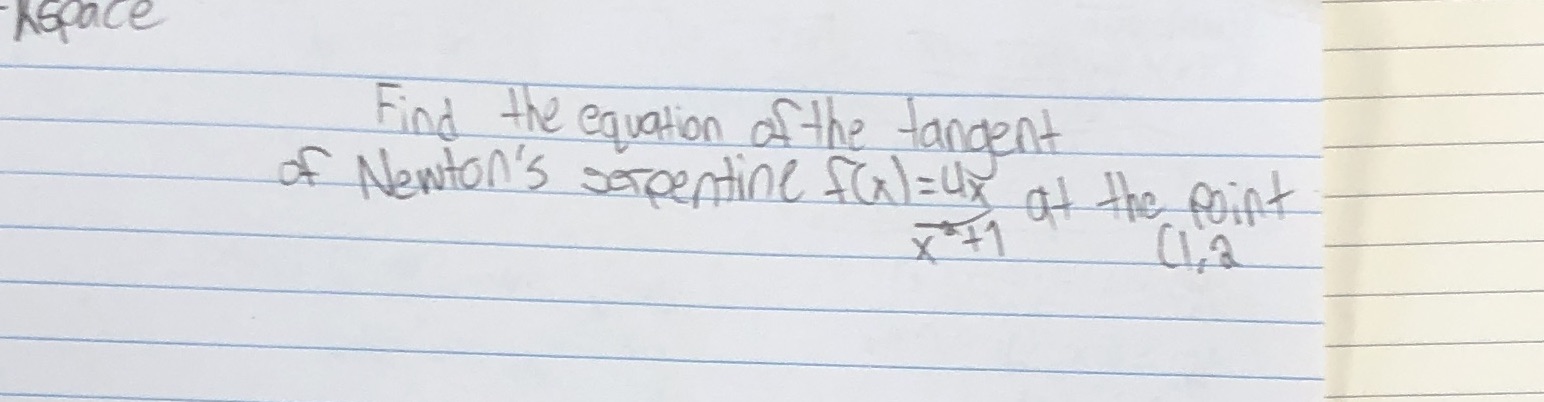 kspace
Find the equation of the tangent
of Newton's serpentine f(x)=4x/x²+1 at the point
(1,2